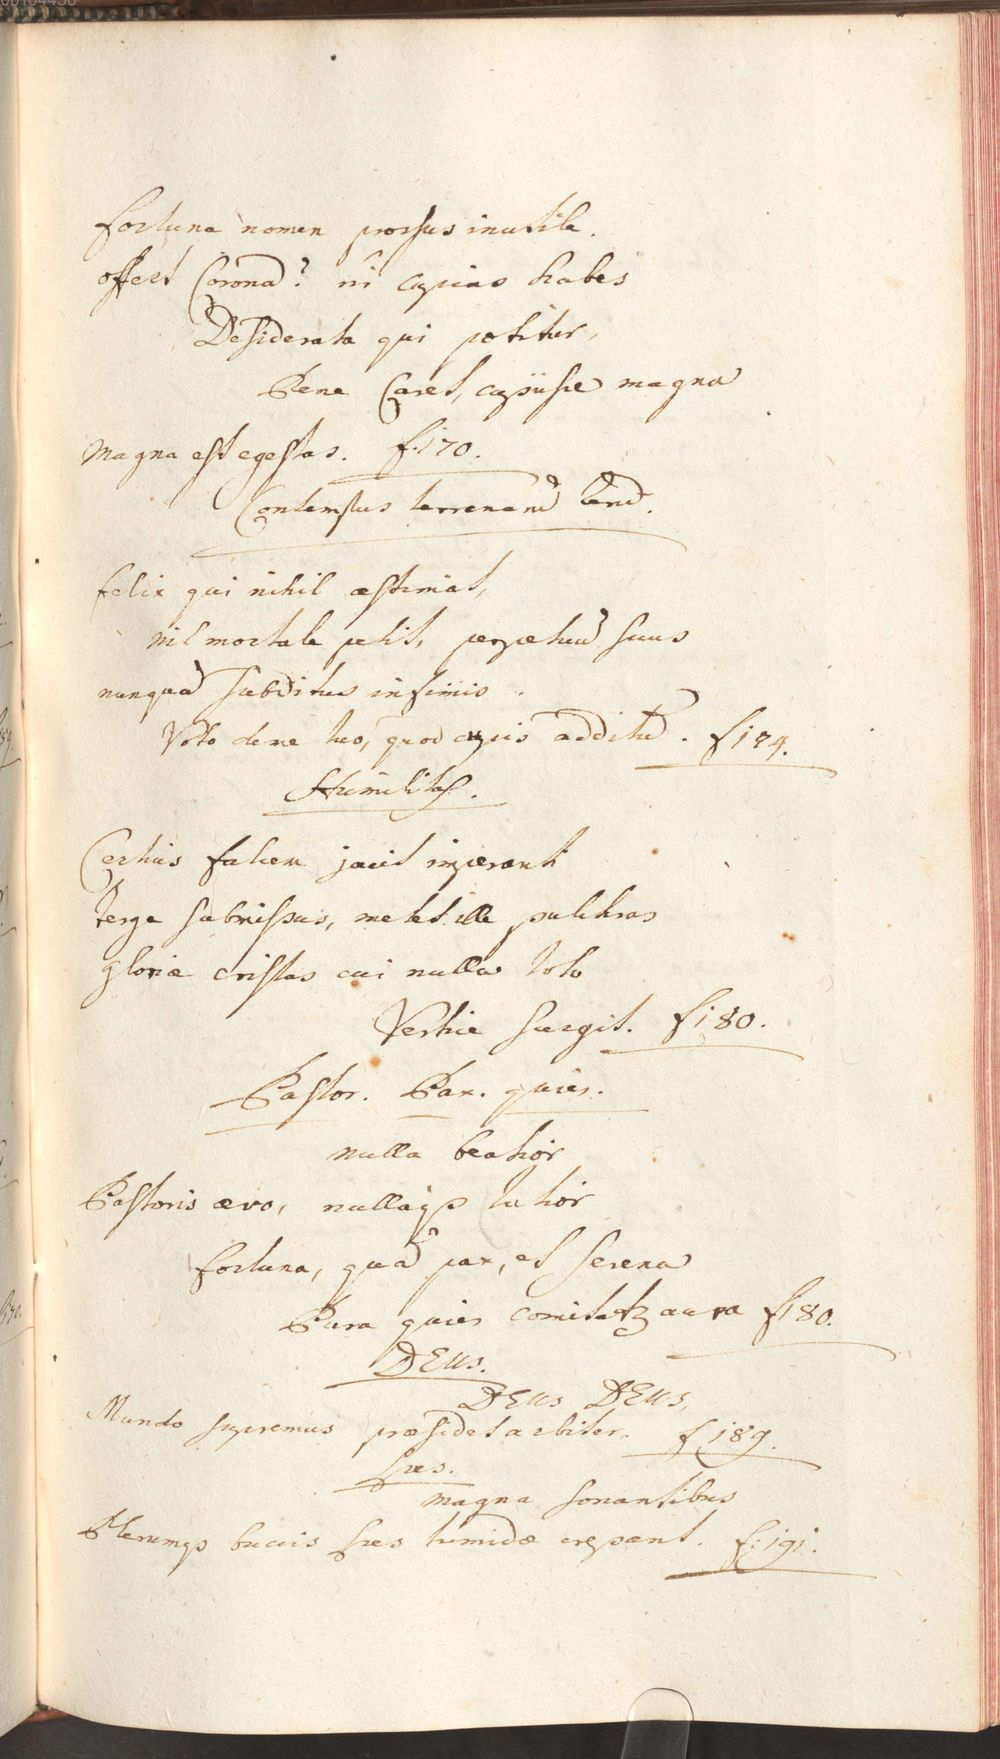 fortuna nomen prorsus inutile.
offert Coronā? ni cupias habes
Desiderata qui potitur,
Pene Caret, cupiisse magna
Magna est egestas. f. 170.
Contemptus terrenarū
felix qui nihil æstimat,
nil mortale petit, perpetuū suus
nunquā subditus infimis.
Voto deme tuo, quod cupis additū. f 174.
Humilitas.
Certius falcem jacit imperanti
terga submissus, metet ille pulchras
gloriæ cristas cui nulla toto
Vertice surgit. f. 180.
Pastor. Pax. quies.
nulla beatior
Pastoris ævo, nullaqȝ tutior
fortuna, quā pax, et serena
Pura quies comitatȝ aura f 180.
DEUs.
DEUs DEUs,
Mundo supremus præsidet arbiter. f 189.
spes.
magna sonantibus
Plerumqȝ buccis spes tumidæ crepant. f: 191.